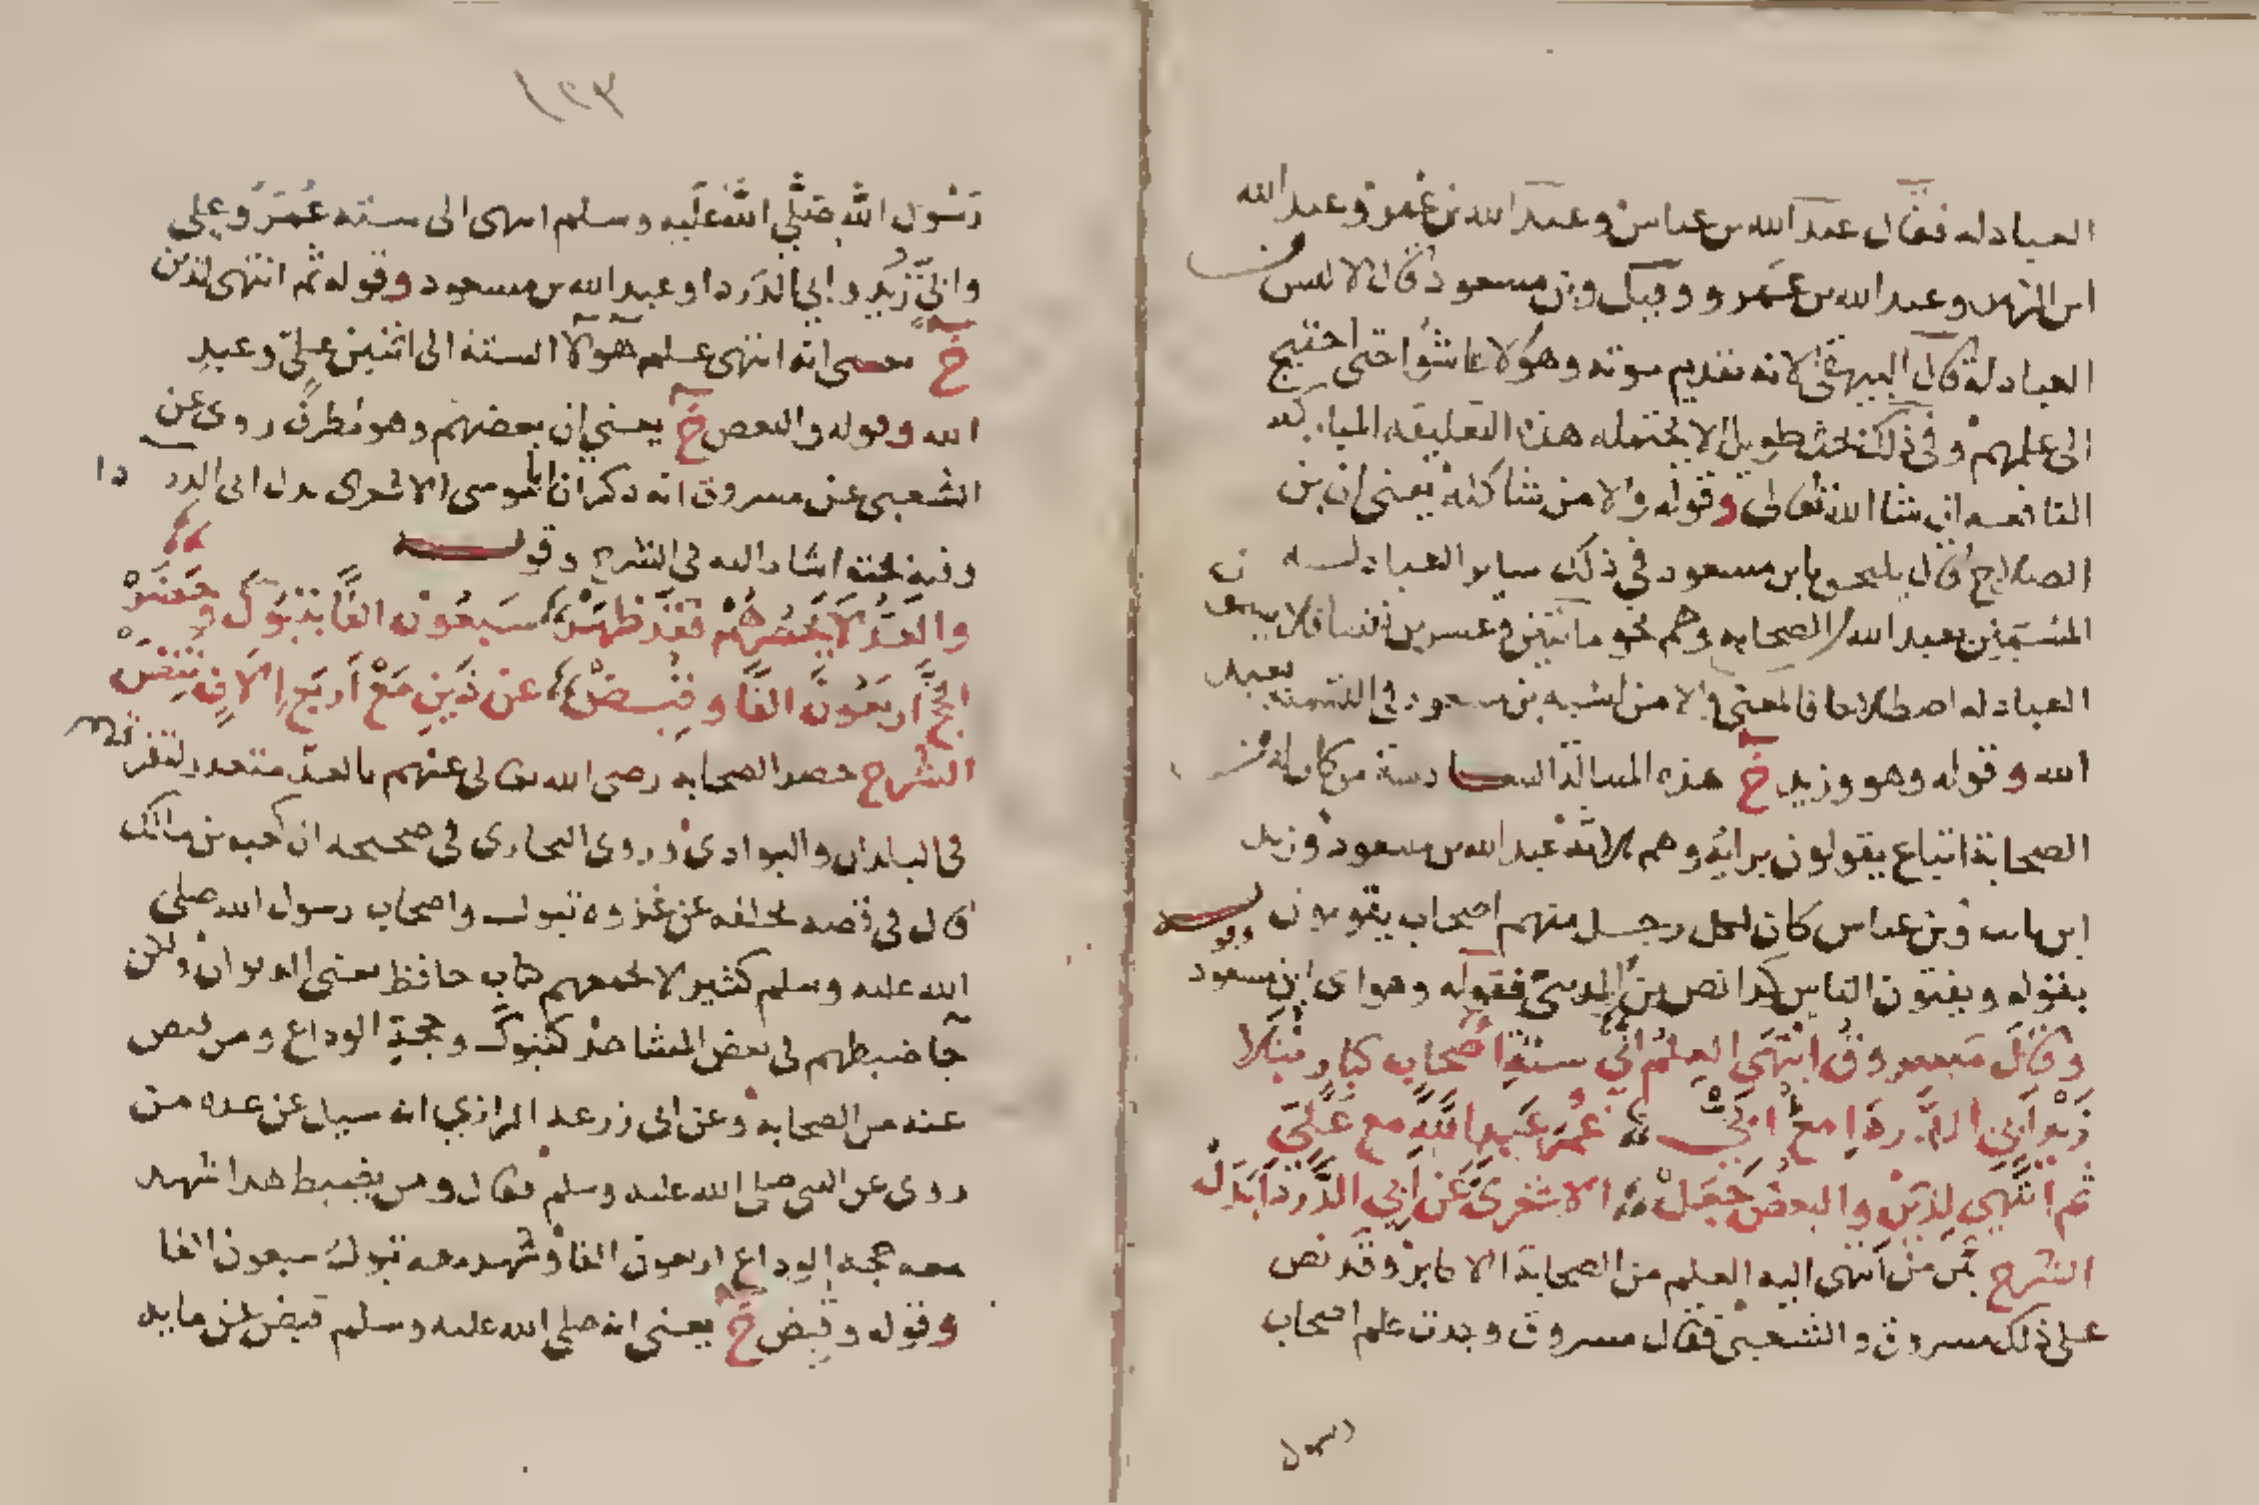 العبادله فقال عبد الله بن عباس وعبد الله بن عمر وعبد الله
ابن الزبير وعبد الله بن عمرو وقيل وبن مسعود قال لا ليس من
العبادلة قال البيهقي لانه تقديم موته وهولا عاشوا حتى احتيج
الى علمهم وفي ذلك بحث طويل لا يحتمله هذه التعليقه المباركه
النافعه ان شا الله تعالى وقوله ولا من شاكله يعني ان بن
الصلاح قال يلتحق بابن مسعود في ذلك ساير العبادلسه
المسمين بعبد الله من الصحابه وهم نحو ماتتين وعشرين نفسا فلا يسمون
العبادله اصطلاحا فالمعنى ولا من اشبه بن مسعود في التسميه بعبد
الله وقوله وهو وزيد خ هذه المسالة السادسة من كان له من
الصحابة اتباع يقولون برايه وهم ثلاثه عبد الله بن مسعود وزيد
ابن ثابت وبن عباس كان لكل رجل منهم اصحاب يقومون
بقوله ويفتون الناس كذا نص بن المديني فقوله وهو اى ابن مسعود وقوله
وقال مسروق انتهى العلم الى ستة اصحاب كبار نبلا
زيد ابي الدردا مع ابي عمر عبد الله مع علي
ثم انتهى لذين والبعض جعل الاشعري عن ابي الدردا بدل
الشرح ثمن من انتهى اليه العلم من الصحابة الاكابر وقد نص
على ذلك مسروق والشعبي فقال مسروق وجدت علم اصحاب
رسول
١٢٣
رسول الله صلى الله عليه وسلم انتهى الى سته عمر وعلي
وابي وزيد وابي الدردا وعبد الله بن مسعود وقوله ثم انتهى لذين
خ معنى انه انتهى علم هولا الستة الى اثنين علي وعبد
الله وقوله والبعض خ يعني ان بعضهم وهو مطرف روى عن
الشعبي عن مسروق انه ذكر ان ابا موسى الاشعرى بدل ابى الدردا
وفيه بحث اشار اليه في الشرح وقوله
والعد لا يحصرهم فقد ظهر سبعون الفا بتبوك وحضر
الحج اربعون الفا وقبض عن ذين مع اربع الاف تنض
الشرح حصر الصحابه رضى الله تعالى عنهم بالعد متعدر لتفرقهم
في البلدان والبوادى وروى البخارى في صحيحه ان كعب بن مالك
قال في قصه تخلفه عن غزوه تبوك واصحاب رسول الله صلى
الله عليه وسلم كثير لا يجمعهم كتاب حافظ يعنى الديوان ولكن
جا ضبطهم في بعض المشاهد كتبوك وحجة الوداع ومن قبض
عنه من الصحابه وعن ابى زرعه الرازي انه سيل عن عده من
روى عن النبي صلى الله عليه وسلم فقال ومن يضبط هدا شهد
معه حجه الوداع اربعون الفا وشهد معه تبوك سبعون الفا
وقوله وقبض خ يعنى انه صلى الله عليه وسلم قبض عن مايه